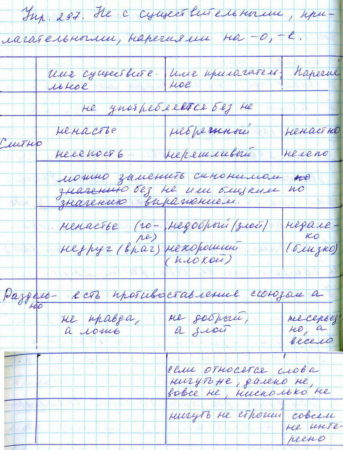 Упр. 297. Не с существительными, при-
лагательными, наречиями на -о, -е.
Имя существите- Имя прилагатель- Наречие
льное ное
не употребляется без не
Слитно ненастье небрежный ненастно
нелепость неряшливый нелепо
можно заменить синонимом по
значению без не или близким по
значению выражением.
ненастье (го- недоброй (злой) недале-
ре) ко
недруг (враг) нехороший (близко)
(плохой)
Раздель- есть противоставление союзом а
но
не правда, не добрый, несерьез
а ложь а злой но, а
весело
если относятся слова
нисуть не, далеко не,
вовсе не, нисколько не
нисуть не строгий совсем
не инте-
ресно